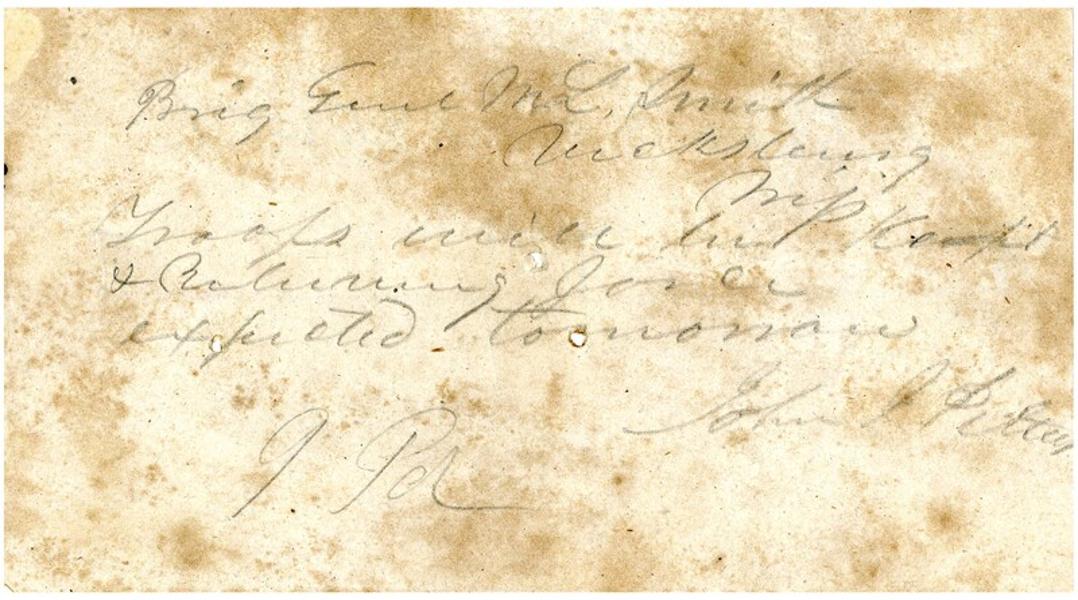 Brig Genl M L. Smith
Vicksburg
Miss
Troops will be Kept
& Returning force
expected tomorrow
John J Pettus
9 Pd